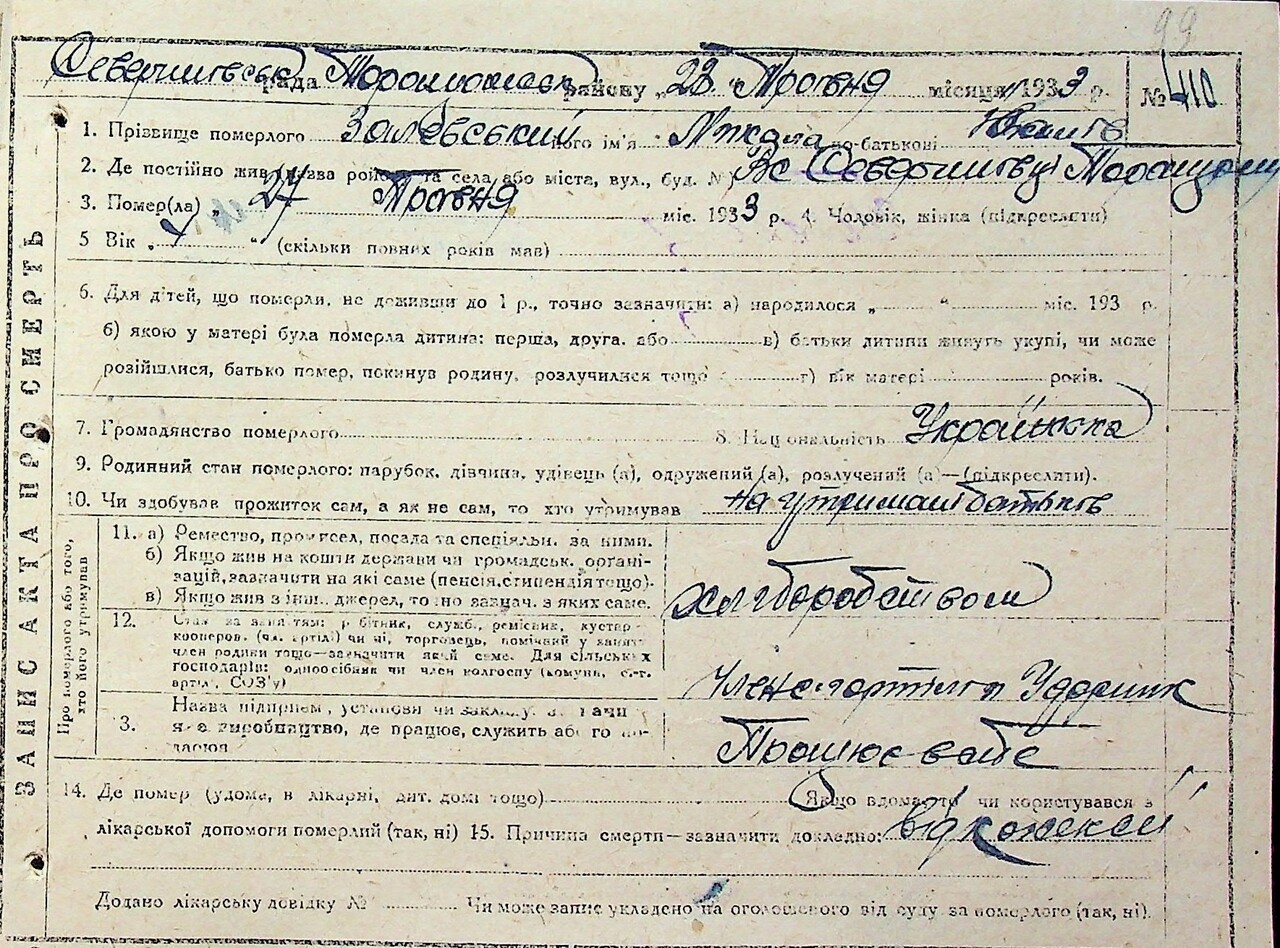 99
рада районy „ 28 “ Травня місяця 1933 р. № 410
1. Прізвище померлого Залевський його ім'я Микола по-батькові
2. Де постійно жив (назва району та села або міста, вул., буд. №)
3. Помер(ла) „ 27 Травня міс. 1933 р. 4. Чоловік, жінка (підкреслити)
5 Вік „ “ (скільки повних років мав)
6. Для дітей, що померли, не доживши до 1 р., точно зазначити: а) народилося „ “ міс. 193 р.
б) якою у матері була померла дитина: перша, друга. або в) батьки дитини живуть укупі, чи може
розійшлися, батько помер, покинув родину, розлучилися тощо г) вік матері років.
7. Громадянство померлого 8. Національність Українська
9. Родинний стан померлого: парубок, дівчина, удівець (а), одружений (а), розлучений (а—(підкреслити).
10. Чи здобував прожиток сам, а як не сам, то хто утримував на утримані батьків
ЗАПИС АКТА ПРО СМЕРТЬ
Про померлого або того,
хто його утримував
11. а) Ремество, промисел, посада та спеціяльн. за ними.
б) Якщо жив на кошти держави чи громадськ. органі-
зацій, зазначити на які саме (пенсія, стипендія тощо).
в) Якщо жив з інш. джерел, точно зазнач. з яких саме.
хліборобством
12. Стан за заняттям: робітник, служб., ремісник, кустар
кооперов. (чл. артілі) чи ні, торговець, помічний у занят.
член родини тощо—зазначити який саме. Для сільських
господарів: одноосібник чи член колгоспу (комуни, с.-г.
артілі, СОЗ'у)
Член с-г артіли Ударник
3. Назва підприєм., установи чи закладу,
виробництво, де працює, служить або го по-
дарює
Працює в
14. Де помер (удома, в лікарні, дит. домі тощо) Якщо вдома то чи користувався з
лікарської допомоги померлий (так, ні) 15. Причина смерти—зазначити докладно: від
Додано лікарську довідку № Чи може запис укладено на оголошеного від суду за померлого (так, ні).